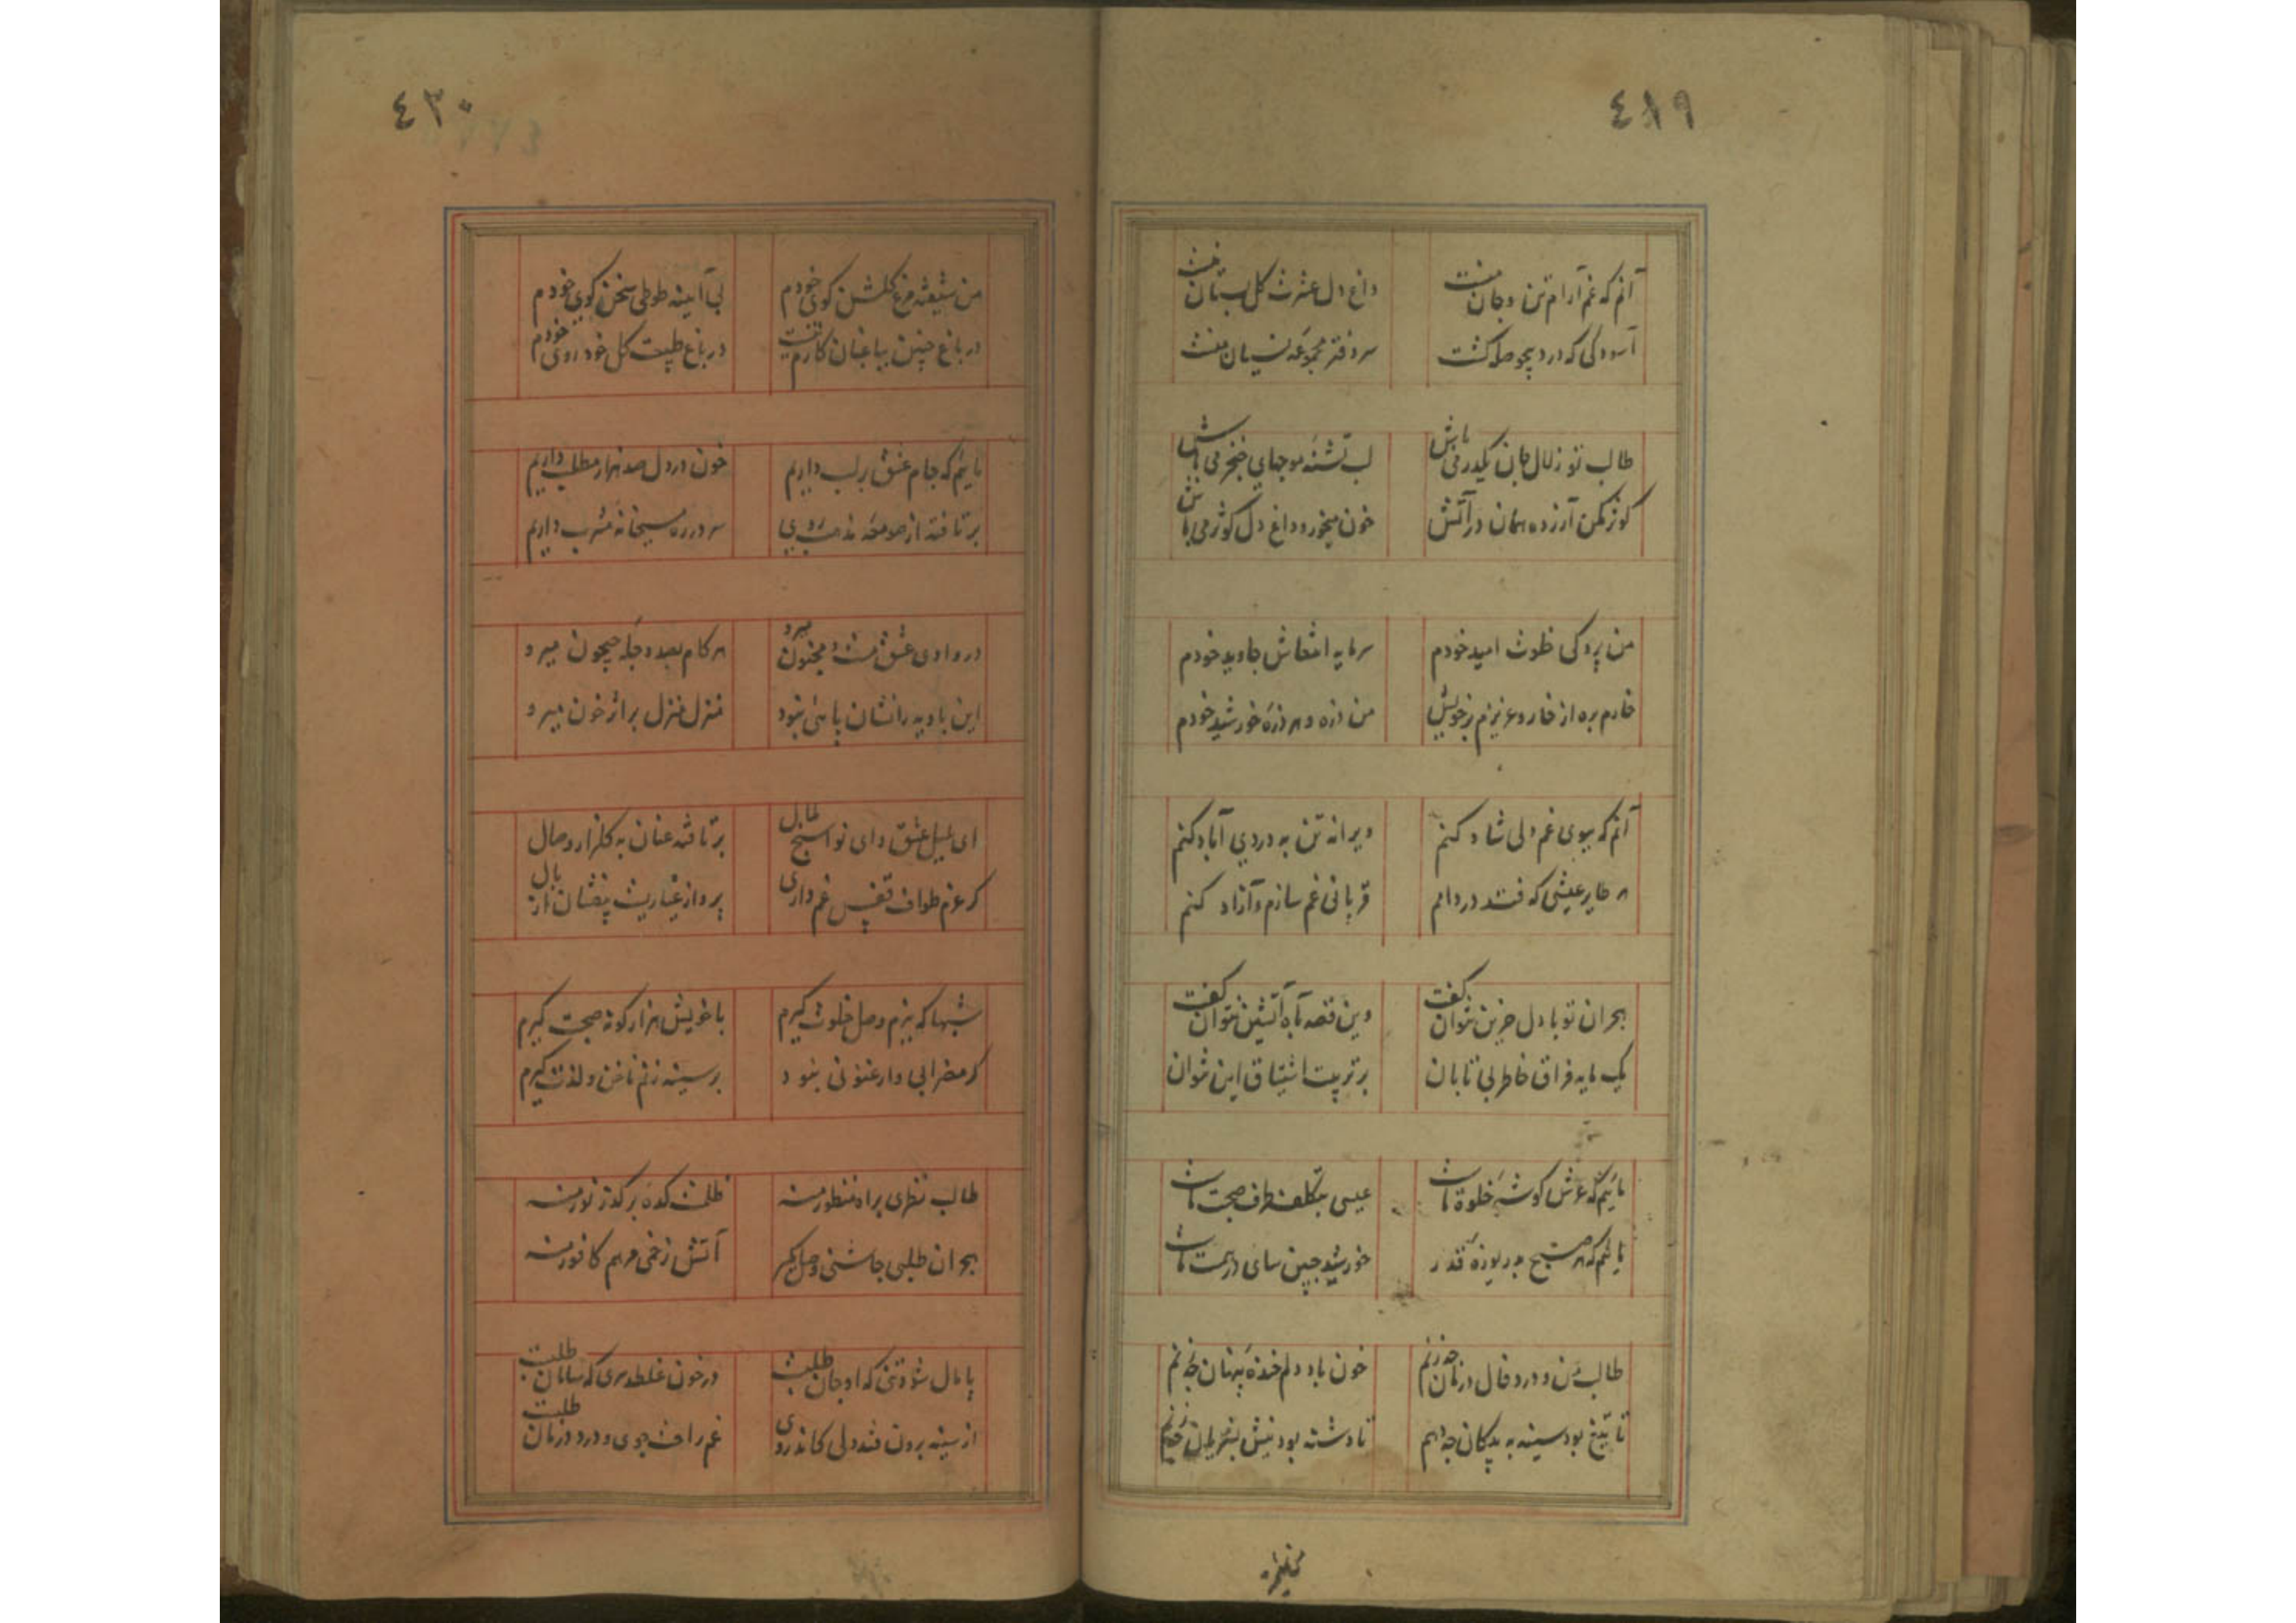 ٤١٩
آنم که غم آرام تن و جان منست
داغ دل عشرت گل بستان منست
آسودگی که درد بیحوصله گشت
سر دفتر مجموعه نسیان منست
طالب تو زلال جان یکدر می باش
لب تشنه موجهای خنجر می باش
کوثر مکن آرزو همان در آتش
خون میخور و داغ دل کوثر می باش
من پردگی خلوت امید خودم
سرمایه انتعاش جاوید خودم
خارم بره از خار و عزیزم بر خویش
من ذره و هر ذره خورشید خودم
آنم که ببوی غم دلی شاد کنم
ویرانه تن به دردی آباد کنم
هر طایر عیشی که فتد در دامم
قربانی غم سازم و آزاد کنم
هجران تو با دل حزین نتوان گفت
وین قصه به آه آتشین نتوان گفت
یک مایه فراق خاطر بی تابان
بر تربیت اشتیاق این نتوان
مائیم که عرش گوشه خلوة ماست
عیسی بتکلف طرف صحبت ماست
مائیم که هر صبح بدریوزه قدر
خورشید جبین سای در همت ماست
طالب من و درد فال درمان چه زنم
خون باد دلم خنده پنهان چه زنم
تا تیغ بود سینه به پیکان چه دهم
تا دشنه بود نیش بشریان چه زنم
٤٣٠
من شیفته مرغ گلشن کوی خودم
بی آینه طوطی سخن گوی خودم
در باغ چنین بباغبان کارم نیست
در باغ طبیعت گل خود روی خودم
مائیم که جام عشق بر لب داریم
خون در دل صد هزار مطلب داریم
بر تافته از صومعه مذهب روی
سر در ره میخانه مشرب داریم
در وادی عشق مست و مجنون میرو
هر گام بعد دجله جیحون میرو
این بادیه را نشان پائی نبود
منزل منزل بر اثر خون میرو
ای بلبل عشق وای نوا سنج طالب
بر تافته عنان به گلزار وصال
گر عزم طواف قفس غم داری
پرواز غباریست بیفشان از بال
شبها که ببزم وصل خلوت گیرم
با خویش هزار گونه صحبت گیرم
گر مضرابی و ارغنونی نبود
بر سینه زنم ناخن و لذت گیرم
طالب نظری براه منظور منه
ظلمت کده بر گذر نور منه
هجران طلبی چاشنی وصل مگیر
آتش زخمی مرهم کافور منه
پامال شود تنی که او جان طلبست
در خون غلطد سری که سامان طلبست
از سینه برون فتد دلی کاندر وی
غم راحت جوی و درد درمان طلبست